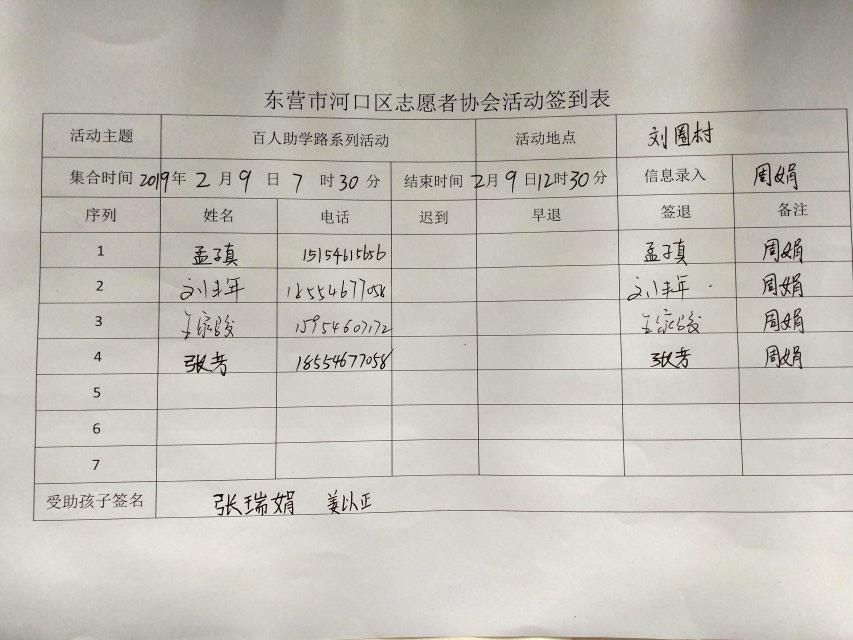 东营市河口区志愿者协会活动签到表
活动主题 百人助学路系列活动 活动地点 刘圈村
集合时间 2019年 2月 9日 7时30分 结束时间 2月9日12时30分 信息录入 周娟
序列 姓名 电话 迟到 早退 签退 备注
1 孟子真 15154615656 孟子真 周娟
2 刘丰年 18554677058 刘丰年 周娟
3 15954607172 周娟
4 张芳 18554677058 张芳 周娟
5
6
7
受助孩子签名 张瑞娟 姜以正